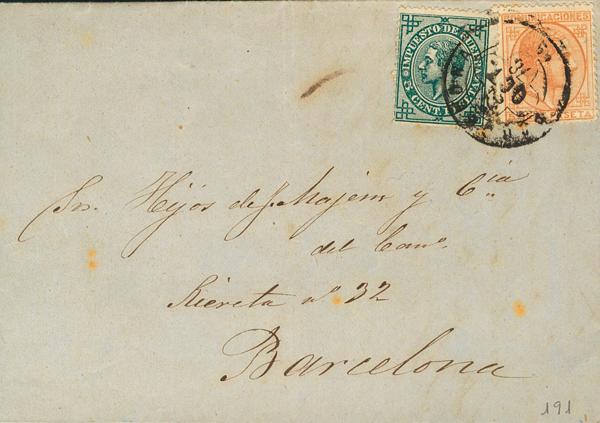 IMPUESTO DE GUERRA
5 CENT. DE PTA.
COMUNICACIONES
PESETA
Srs. Hijos de J. Majem y Cia
del Camo.
Riereta no 32
Barcelona
191